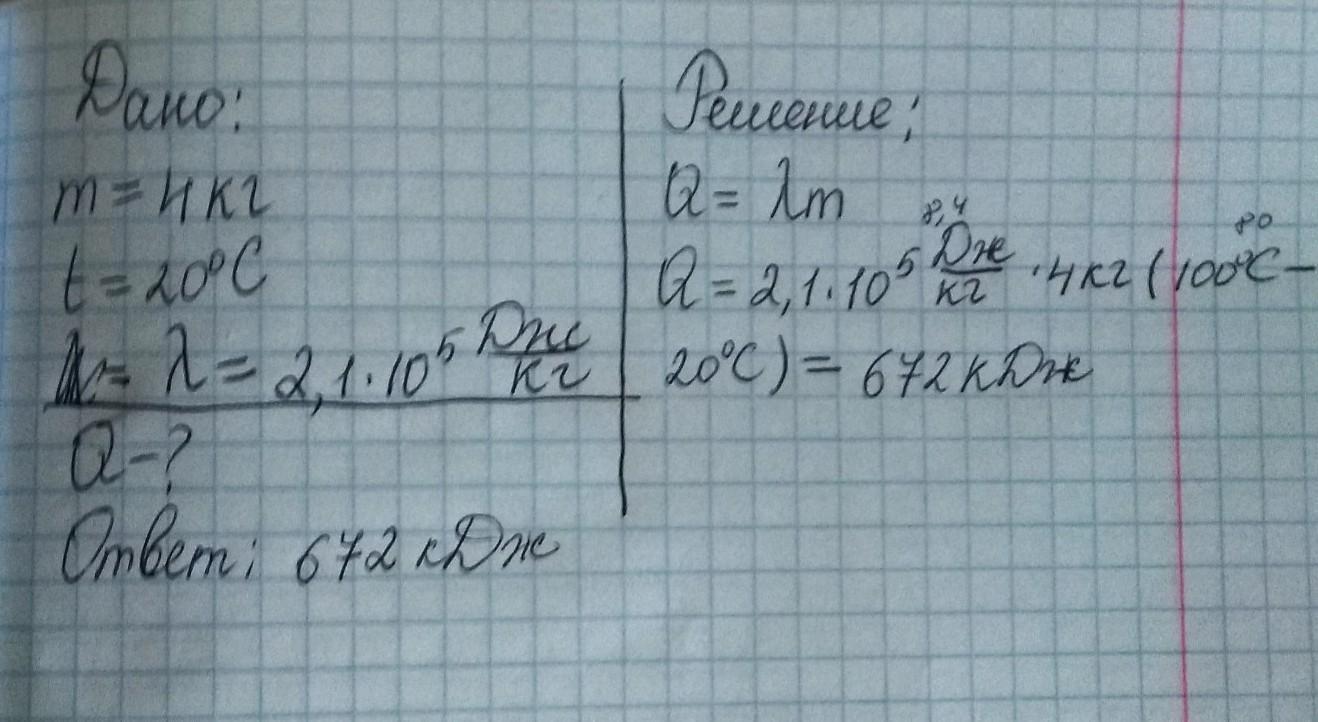 Дано:
m = 4 кг
t = 20°C
λ = 2,1 · 10⁵ Дж/кг
Q - ?
Ответ: 672 кДж
Решение:
Q = λm
8,4 80
Q = 2,1 · 10⁵ Дж/кг · 4 кг (100°C –
20°C) = 672 кДж